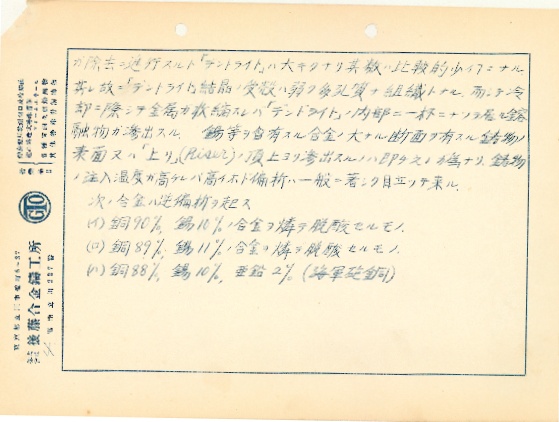 ガ除去ニ進行スルト「デンドライト」ハ大キクナリ其数ハ比較的少イコトニナル
其レ故ニ「デンドライト」結晶ノ受殻ハ弱ク多孔質ナ組織トナル 而シテ冷
却ニ際シテ金属ガ収縮スレバ「デンドライト」ノ内部ニ一杯ニナッテ居ル鎔
融物ガ滲出スル 錫等ヲ含有スル合金ノ大ナル断面ヲ有スル鋳物ノ
表面又ハ「上リ」(Riser)ノ頂上ヨリ滲出スルノハ即チ之ガ為ナリ、鋳物
ノ注入温度ガ高ケレバ高イホド偏析ハ一般ニ著シク目立ッテ来ル、
次ノ合金ハ逆偏析ヲ起ス
(イ) 銅90%、錫10%ノ合金ヲ燐デ脱酸セルモノ
(ロ) 銅89%、錫11%ノ合金ヲ燐デ脱酸セルモノ
(ハ) 銅88%、錫10%、亜鉛2% (海軍砲銅)
GTO
後藤合金鋳工所